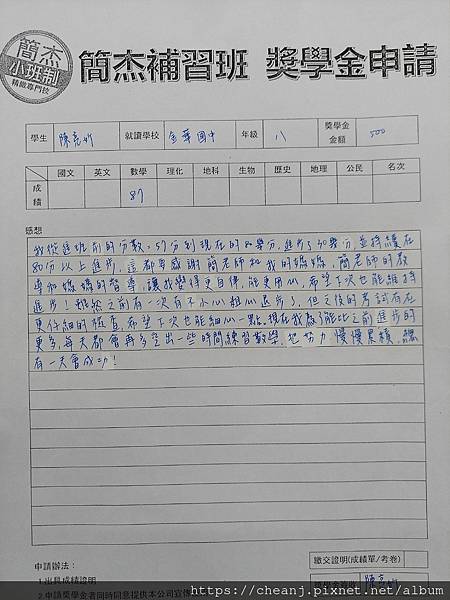 簡杰
小班制
精緻專門技
簡杰補習班 獎學金申請
學生 就讀學校 金華國中 年級 八 獎學金金額 500
國文 英文 數學 理化 地科 生物 歷史 地理 公民 名次
成績 87
感想
我從進班前的分數,57分到現在的80幾分,進步了30幾分,並持續在
80分以上進步,這都要感謝簡老師和我的媽媽,簡老師的教
導和媽媽的督導,讓我變得更自律,能更用心,希望下次也能維持
進步!雖然之前有一次有不小心粗心退步了,但之後的考試有在
更仔細的檢查,希望下次也能細心一點。現在我為了能比之前進步的
更多,每天都會再多空出一些時間練習數學。把努力慢慢累積,總
有一天會成功!
申請辦法:
1.出具成績證明
2.申請獎學金者同時同意提供本公司宣傳
繳交證明(成績單/考卷)
獎學金簽收
https://cheanj.pixnet.net/album